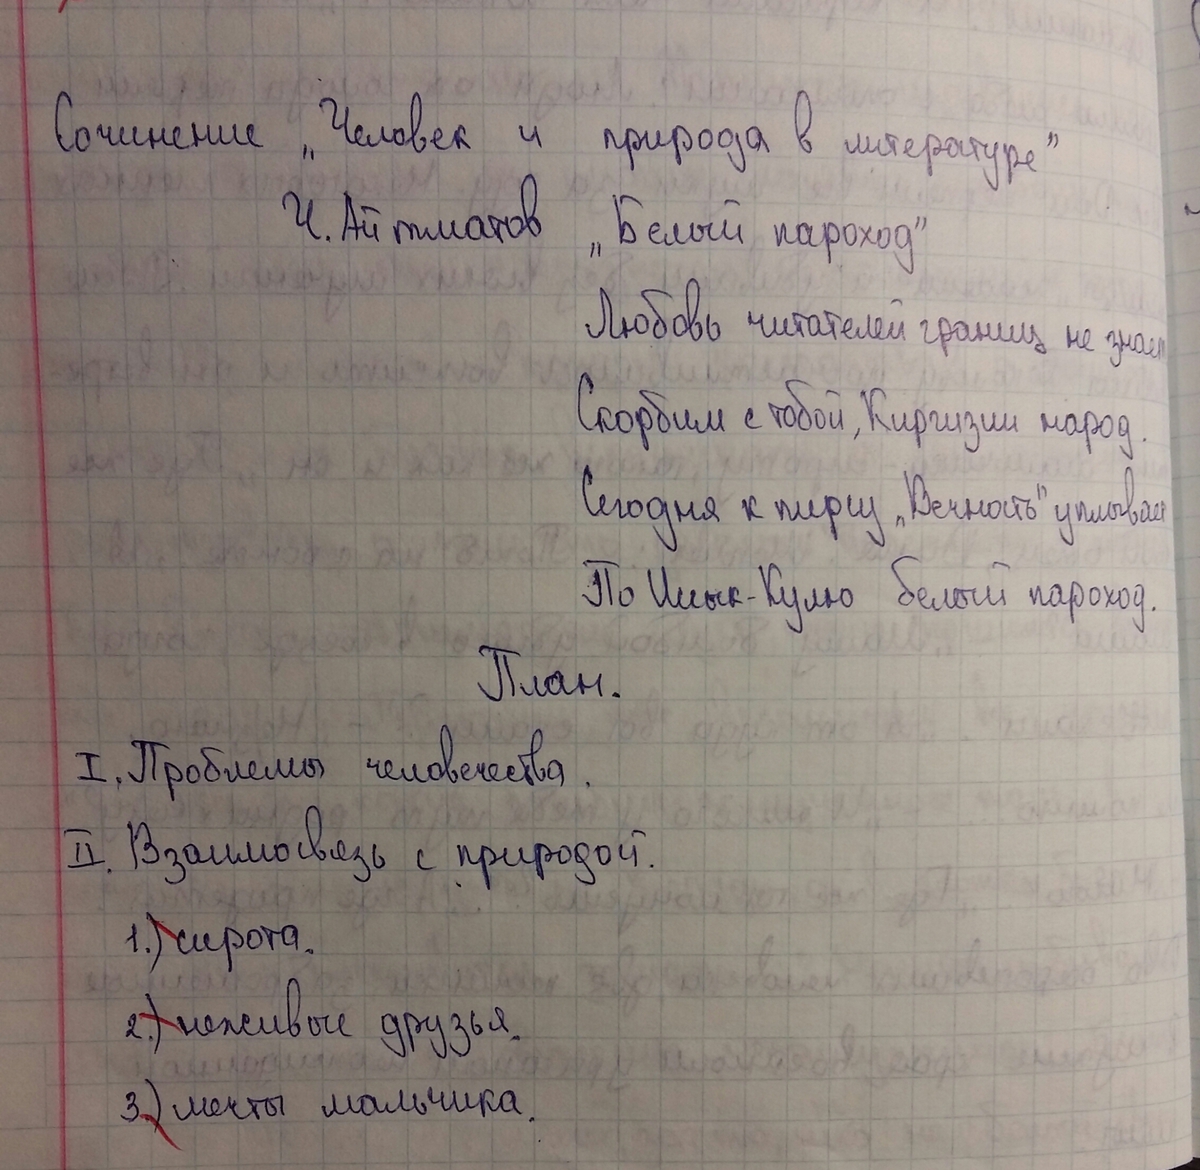 Сочинение „Человек и природа в литературе”
Ч. Айтматов „Белый пароход”
Любовь читателей границ не знает
Скорбим с тобой, Киргизии народ.
Сегодня к пирсу „Вечность” уплывает
По Иссык-Кулю белый пароход.
План.
I. Проблемы человечества.
II. Взаимосвязь с природой.
1.) сирота.
2.) неживые друзья.
3.) мечты мальчика.